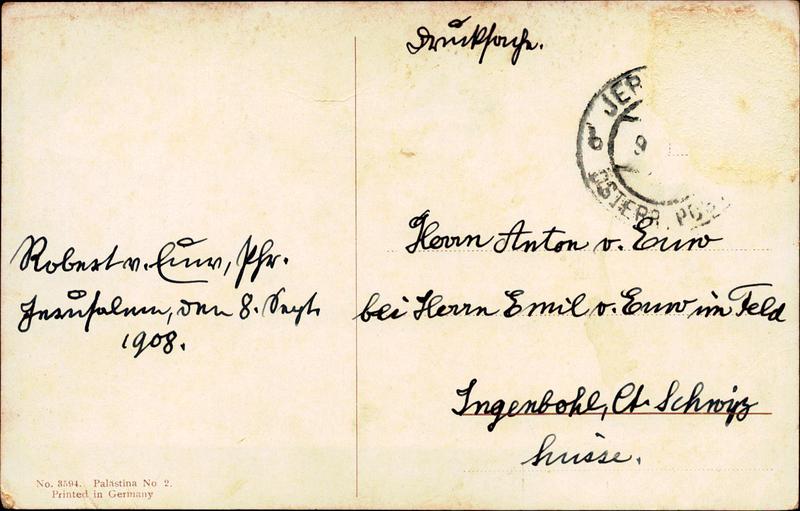 Drucksache.
JER
9
6
ÖSTERR. POST
Herrn Anton v. Euw
bei Herrn Emil v. Euw im Feld
Ingenbohl, Ct. Schwyz
Suisse.
Robert v. Euw, Pfr.
Jerusalem, den 8. Sept.
1908.
No. 3594. Palästina No 2.
Printed in Germany